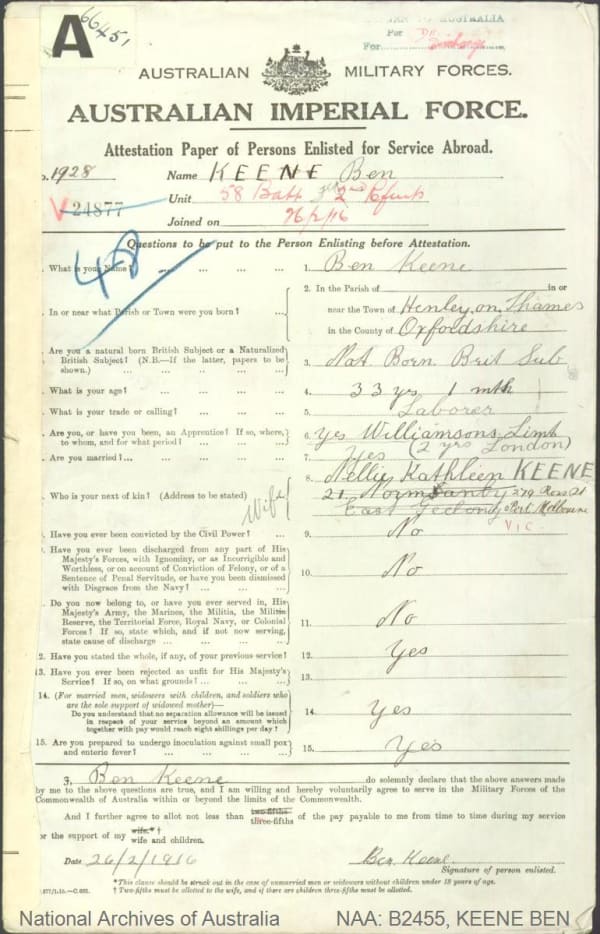 A
66451
TO AUSTRALIA
For
For Discharge
AUSTRALIAN MILITARY FORCES.
AUSTRALIAN IMPERIAL FORCE.
Attestation Paper of Persons Enlisted for Service Abroad.
o. 1928 Name KEENE Ben
V 24877 Unit 58 Batt 2
Joined on 26/2/16
48
Questions to be put to the Person Enlisting before Attestation.
. What is your Name? ... ... ... ... 1. Ben Keene
. In or near what Parish or Town were you born? ... 2. In the Parish of in or
near the Town of Henley on Thames
in the County of Oxfordshire
. Are you a natural born British Subject or a Naturalized
British Subject? (N.B.—If the latter, papers to be
shown.) ... ... ... ... ... 3. Nat Born Brit Sub
. What is your age? ... ... ... ... 4. 33 yrs 1 mth
. What is your trade or calling? ... ... ... 5. Laborer
. Are you, or have you been, an Apprentice? If so, where,
to whom, and for what period? ... ... ... 6. Yes Williamsons Limt
(2 yrs London)
. Are you married? ... ... ... ... 7. Yes
. Who is your next of kin? (Address to be stated) Wife 8. Nellie Kathleen KEENE
21 Normanby 279 Ross St
East Geelong Port Melbourne
VIC.
. Have you ever been convicted by the Civil Power? ... 9. No
. Have you ever been discharged from any part of His
Majesty's Forces, with Ignominy, or as Incorrigible and
Worthless, or on account of Conviction of Felony, or of a
Sentence of Penal Servitude, or have you been dismissed
with Disgrace from the Navy? ... ... ... 10. No
. Do you now belong to, or have you ever served in, His
Majesty's Army, the Marines, the Militia, the Militia
Reserve, the Territorial Force, Royal Navy, or Colonial
Forces? If so, state which, and if not now serving,
state cause of discharge ... ... ... 11. No
2. Have you stated the whole, if any, of your previous service? 12. Yes
13. Have you ever been rejected as unfit for His Majesty's
Service? If so, on what grounds? ... ... ... 13.
14. (For married men, widowers with children, and soldiers who
are the sole support of widowed mother)—
Do you understand that no separation allowance will be issued
in respect of your service beyond an amount which
together with pay would reach eight shillings per day? 14. Yes
15. Are you prepared to undergo inoculation against small pox
and enteric fever? ... ... ... ... 15. Yes
I, Ben Keene do solemnly declare that the above answers made
by me to the above questions are true, and I am willing and hereby voluntarily agree to serve in the Military Forces of the
Commonwealth of Australia within or beyond the limits of the Commonwealth.
And I further agree to allot not less than two-fifths three-fifths of the pay payable to me from time to time during my service
or the support of my wife.* † wife and children.
Date 26/2/1916 Ben Keene
Signature of person enlisted.
* This clause should be struck out in the case of unmarried men or widowers without children under 18 years of age.
† Two-fifths must be allotted to the wife, and if there are children three-fifths must be allotted.
National Archives of Australia NAA: B2455, KEENE BEN